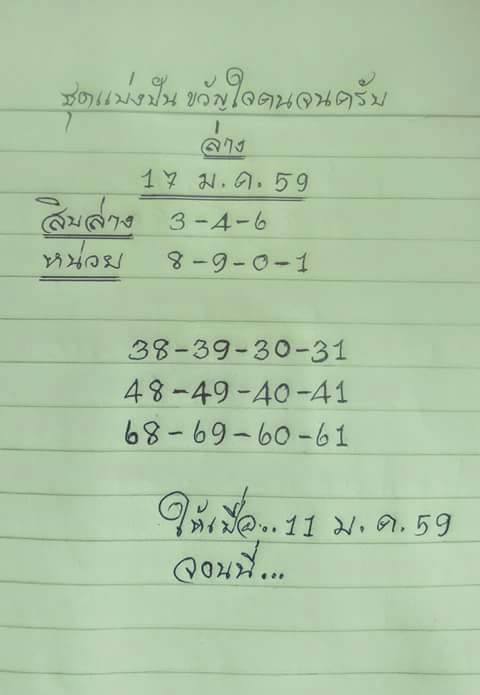 ชุดแบ่งปัน ขวัญใจคนจนครับ
ล่าง
17 ม.ค.59
สิบล่าง 3-4-6
หน่วย 8-9-0-1
38-39-30-31
48-49-40-41
68-69-60-61
ให้เมื่อ..11 ม.ค.59
จอนนี่...